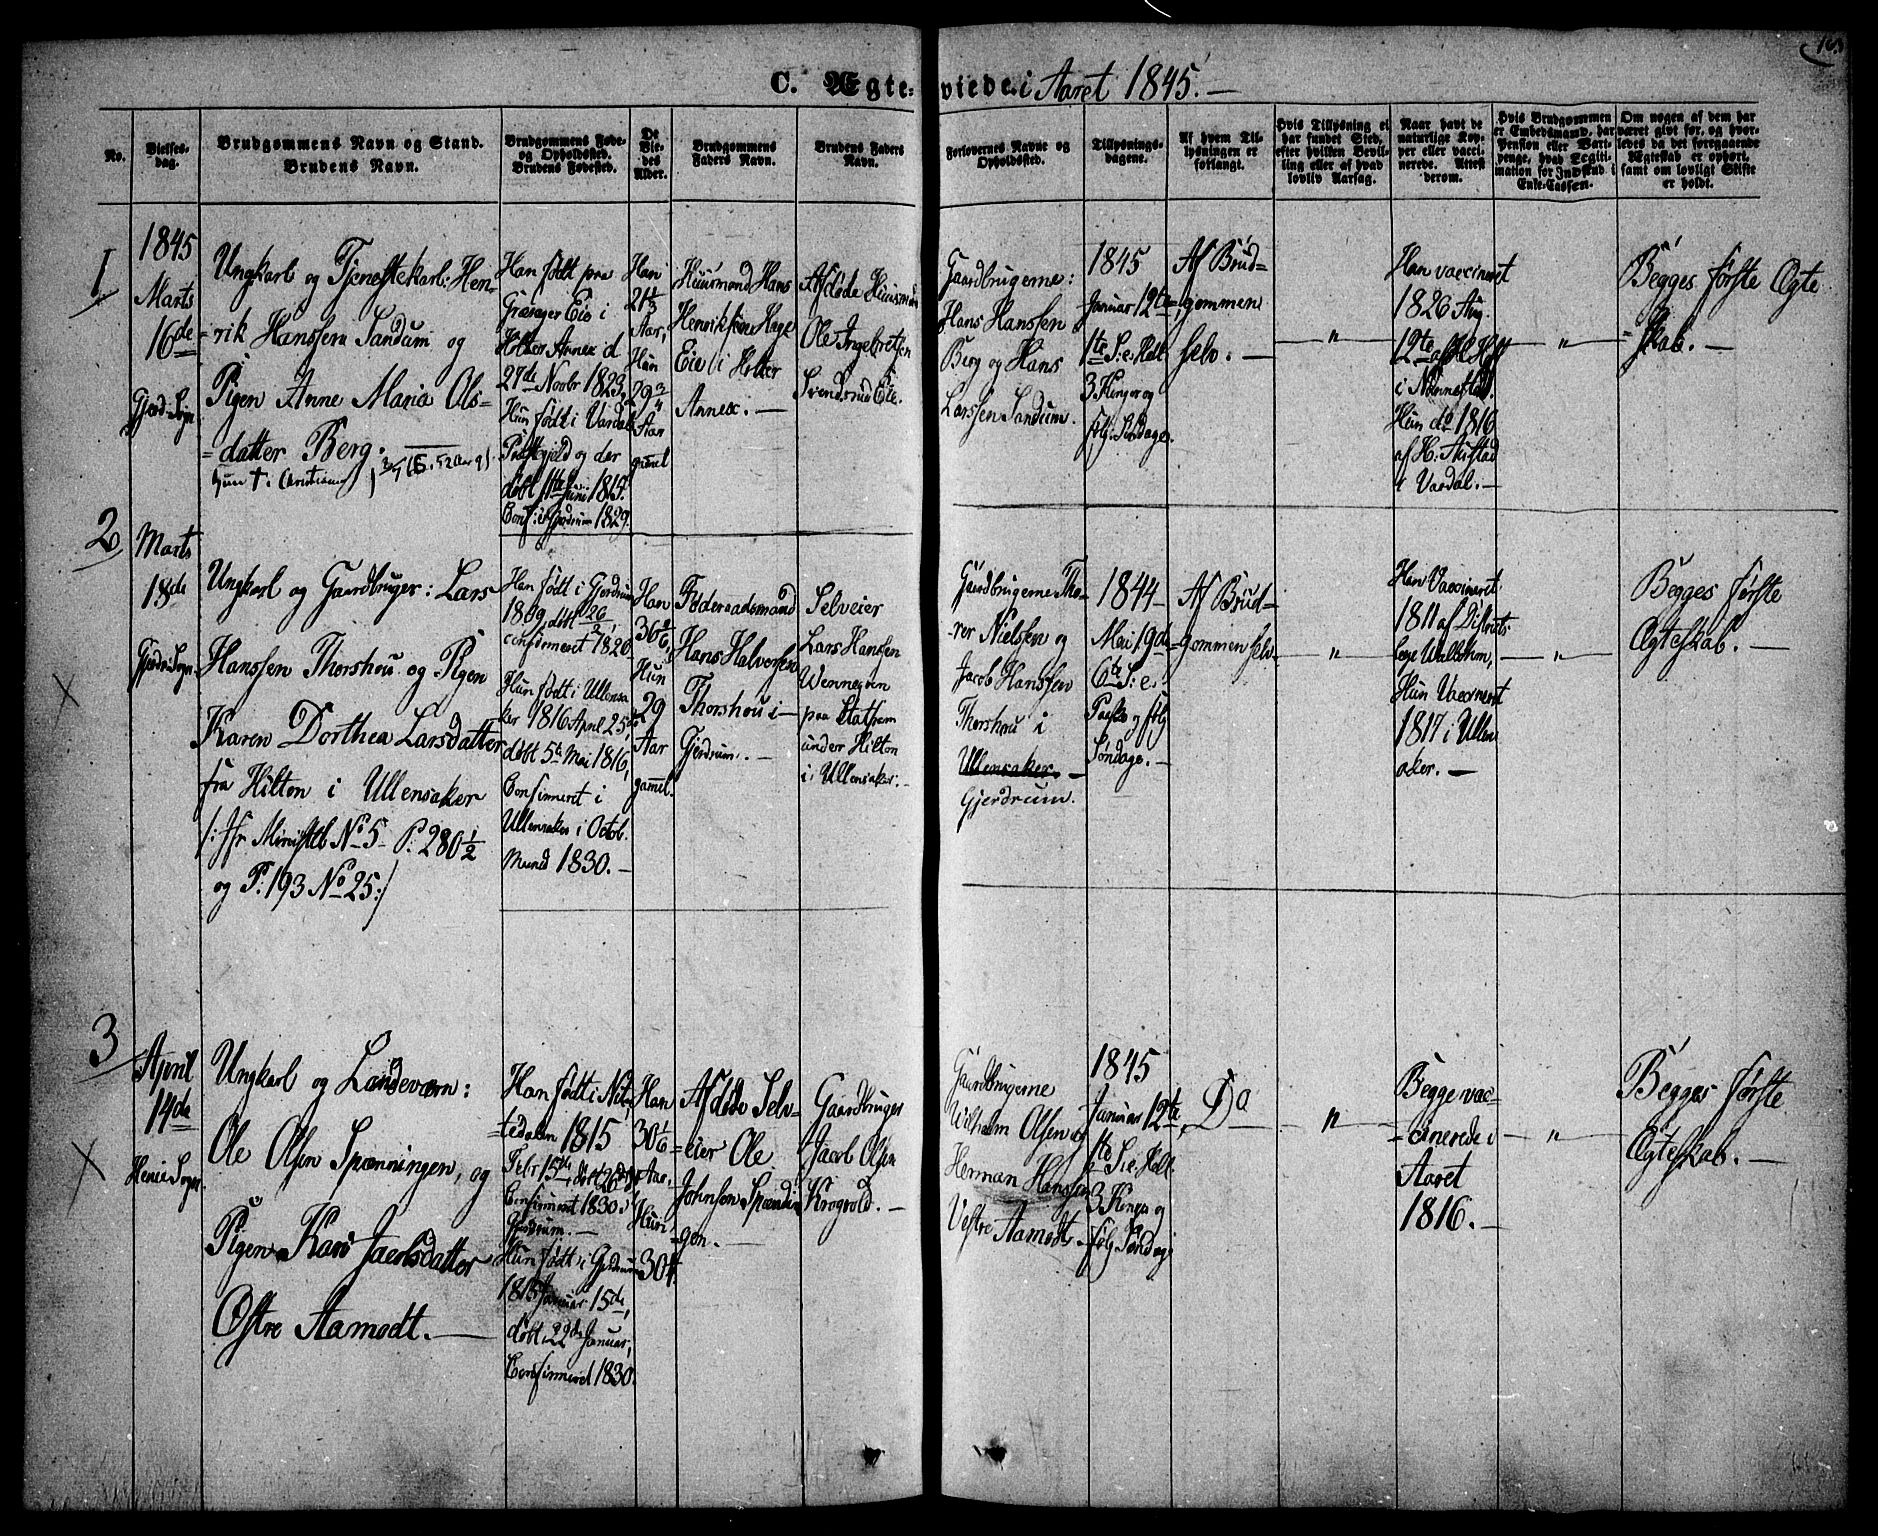 C. Ægte-viede i Aaret 1845.
No.
Vielses-
dag.
Brudgommens Navn og Stand.
Brudens Navn.
BrudgommensFøde-
og Opholdssted.
Brudens Fødested.
De
Vie-
des
Alder.
Brudgommens
Faders Navn.
Brudens Faders
Navn.
Forlovernes Navne og
Opholdssted.
Tillysnings-
dagene.
Af hvem Til-
lysningen er
forlangt.
Hvis Tillysning ei
har fundet Sted,
efter hvilken Bevil-
ling eller af hvad
lovlig Aarsag.
Naar havt de
naturlige Kop-
per eller vacci-
nerede. Attest
derom.
Hvis Brudgommen
er Embedsmand, har
Pension eller Vart-
penge, hvad Legiti-
mation for Indskud i
Enke-Cassen.
Om nogen af dem har
været gift før, og hvor-
ledes da det foregaaende
Ægteskab er ophørt,
samt om lovligt Skifte
er holdt.
1
1845
Marts
16de
Gjerd. Sogn
Ungkarl og Tjenestekarl: Hen-
=rik Hanssen Sandum og
Pigen Anne Maria Ols-
=datter Berg.
Hun † i Christiania
Han født paa
Eie i
Holter Annex d
27de Novbr 1823,
Hun født i Vardal
Præstegjeld og der
døbt 11te Juni 1815.
Conf: i Gjerdrum 1829.
Han
21 1/3
Aar,
Hun
29 3/4
Aar
gammel
Huusmand Hans
Henriksen Hage
Eie i Holter
Annex. —
Afdøde Huusmand
Ole Ingebretsen
Svendsrud Eie.
Gaardbrugerne:
Hans Hanssen
Berg og Hans
Larssen Sandum.
1845
Januar 12te
1te S: e. Hell
3 Konger og
følg: Søndage.
Af Brud-
=gommen
selv. —
"
Han vaccineret
1826 Aug.
12te af
i Nannestad.
Hun do 1816
af H. Austad
i Vardal. —
"
Begges første Ægte
=skab. —
2
Marts
18de
Gjerdr. Sogn
Ungkarl og Gaardbruger: Lars
Hanssen Thorshou og Pigen
Karen Dorthea Larsdatter
fra Hilton i Ullensaker
/: Jfr. Ministlb No 5 P. 280 1/2
og P. 193 No 25 :/
Han født i Gjerdrum
1809 døbt 26/2,
confirmeret 1826
Hun født i Ullensa
ker 1816 April 25de,
døbt 5te Mai 1816,
Confirmeret i
Ullensaker i Octob.
Maaned 1830. —
Han
36
Hun
29
Aar
gammel.
Føderaadsmand
Hans Halvorsen
Thorshou i
Gjerdrum. —
Selveier
Lars Hansen
Wenneven
paa
under Hilton
i Ullensaker. —
Gaardbrugerne Tho-
=rer Nielsen og
Jacob Hanssen
Thorshou i
Ullensaker. —
Gjerdrum.
1844
Mai 19de
6te S: e.
Paaske og følg
Søndage. —
Af Brud-
=gommen selv
"
Han Vaccineret
1811 af Distrikts
læge Wallum,
Hun Vaccineret
1817 i Ullen
aker. —
"
Begges første
Ægteskab. —
3
April
14de
Heni Sogn.
Ungkarl og Landeværn:
Ole Olsen Spænningen, og
Pigen Kari Jacobsdatter
Østre Aamodt. —
Han født i Nit-
=tedalen 1815
Febr 15de, døbt 26
Confirmeret 1830 i
Gjerdrum. —
Hun født i Gjerdrum
1815 Januar 15de,
døbt 22de Januar,
Confirmeret 1830.
Han
30 1/6
Aar,
Hun
30
Afdøde Selv-
=eier Ole
Johnsen Spænnin-
=gen. —
Gaardbruger
Jacob Olsen
Krogvold. —
Gaardbrugerne
Wilhelm Olsen og
Herman Hanssen
Vestre Aamodt. —
1845
Januar 12te,
1te S. e. Hell
3 Konger og
følg Søndage
Do
"
Begge vac-
=cinerede i
Aaret
1816. —
"
Begges første
Ægteskab. —